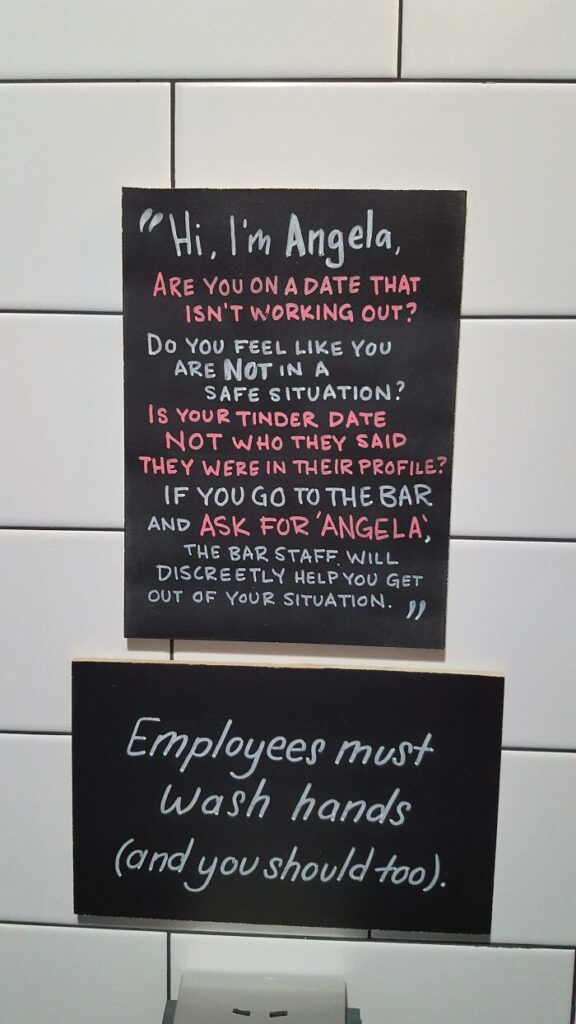 "Hi, I'm Angela,
ARE YOU ON A DATE THAT
ISN'T WORKING OUT?
DO YOU FEEL LIKE YOU
ARE NOT IN A
SAFE SITUATION?
IS YOUR TINDER DATE
NOT WHO THEY SAID
THEY WERE IN THEIR PROFILE?
IF YOU GO TO THE BAR
AND ASK FOR 'ANGELA',
THE BAR STAFF WILL
DISCREETLY HELP YOU GET
OUT OF YOUR SITUATION."
Employees must
wash hands
(and you should too).